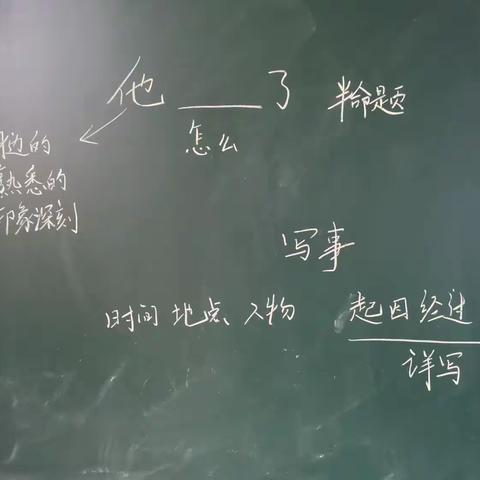 他____了 半命题
怎么
边的
熟悉的
印象深刻
写事
时间 地点 人物 起因 经过
详写